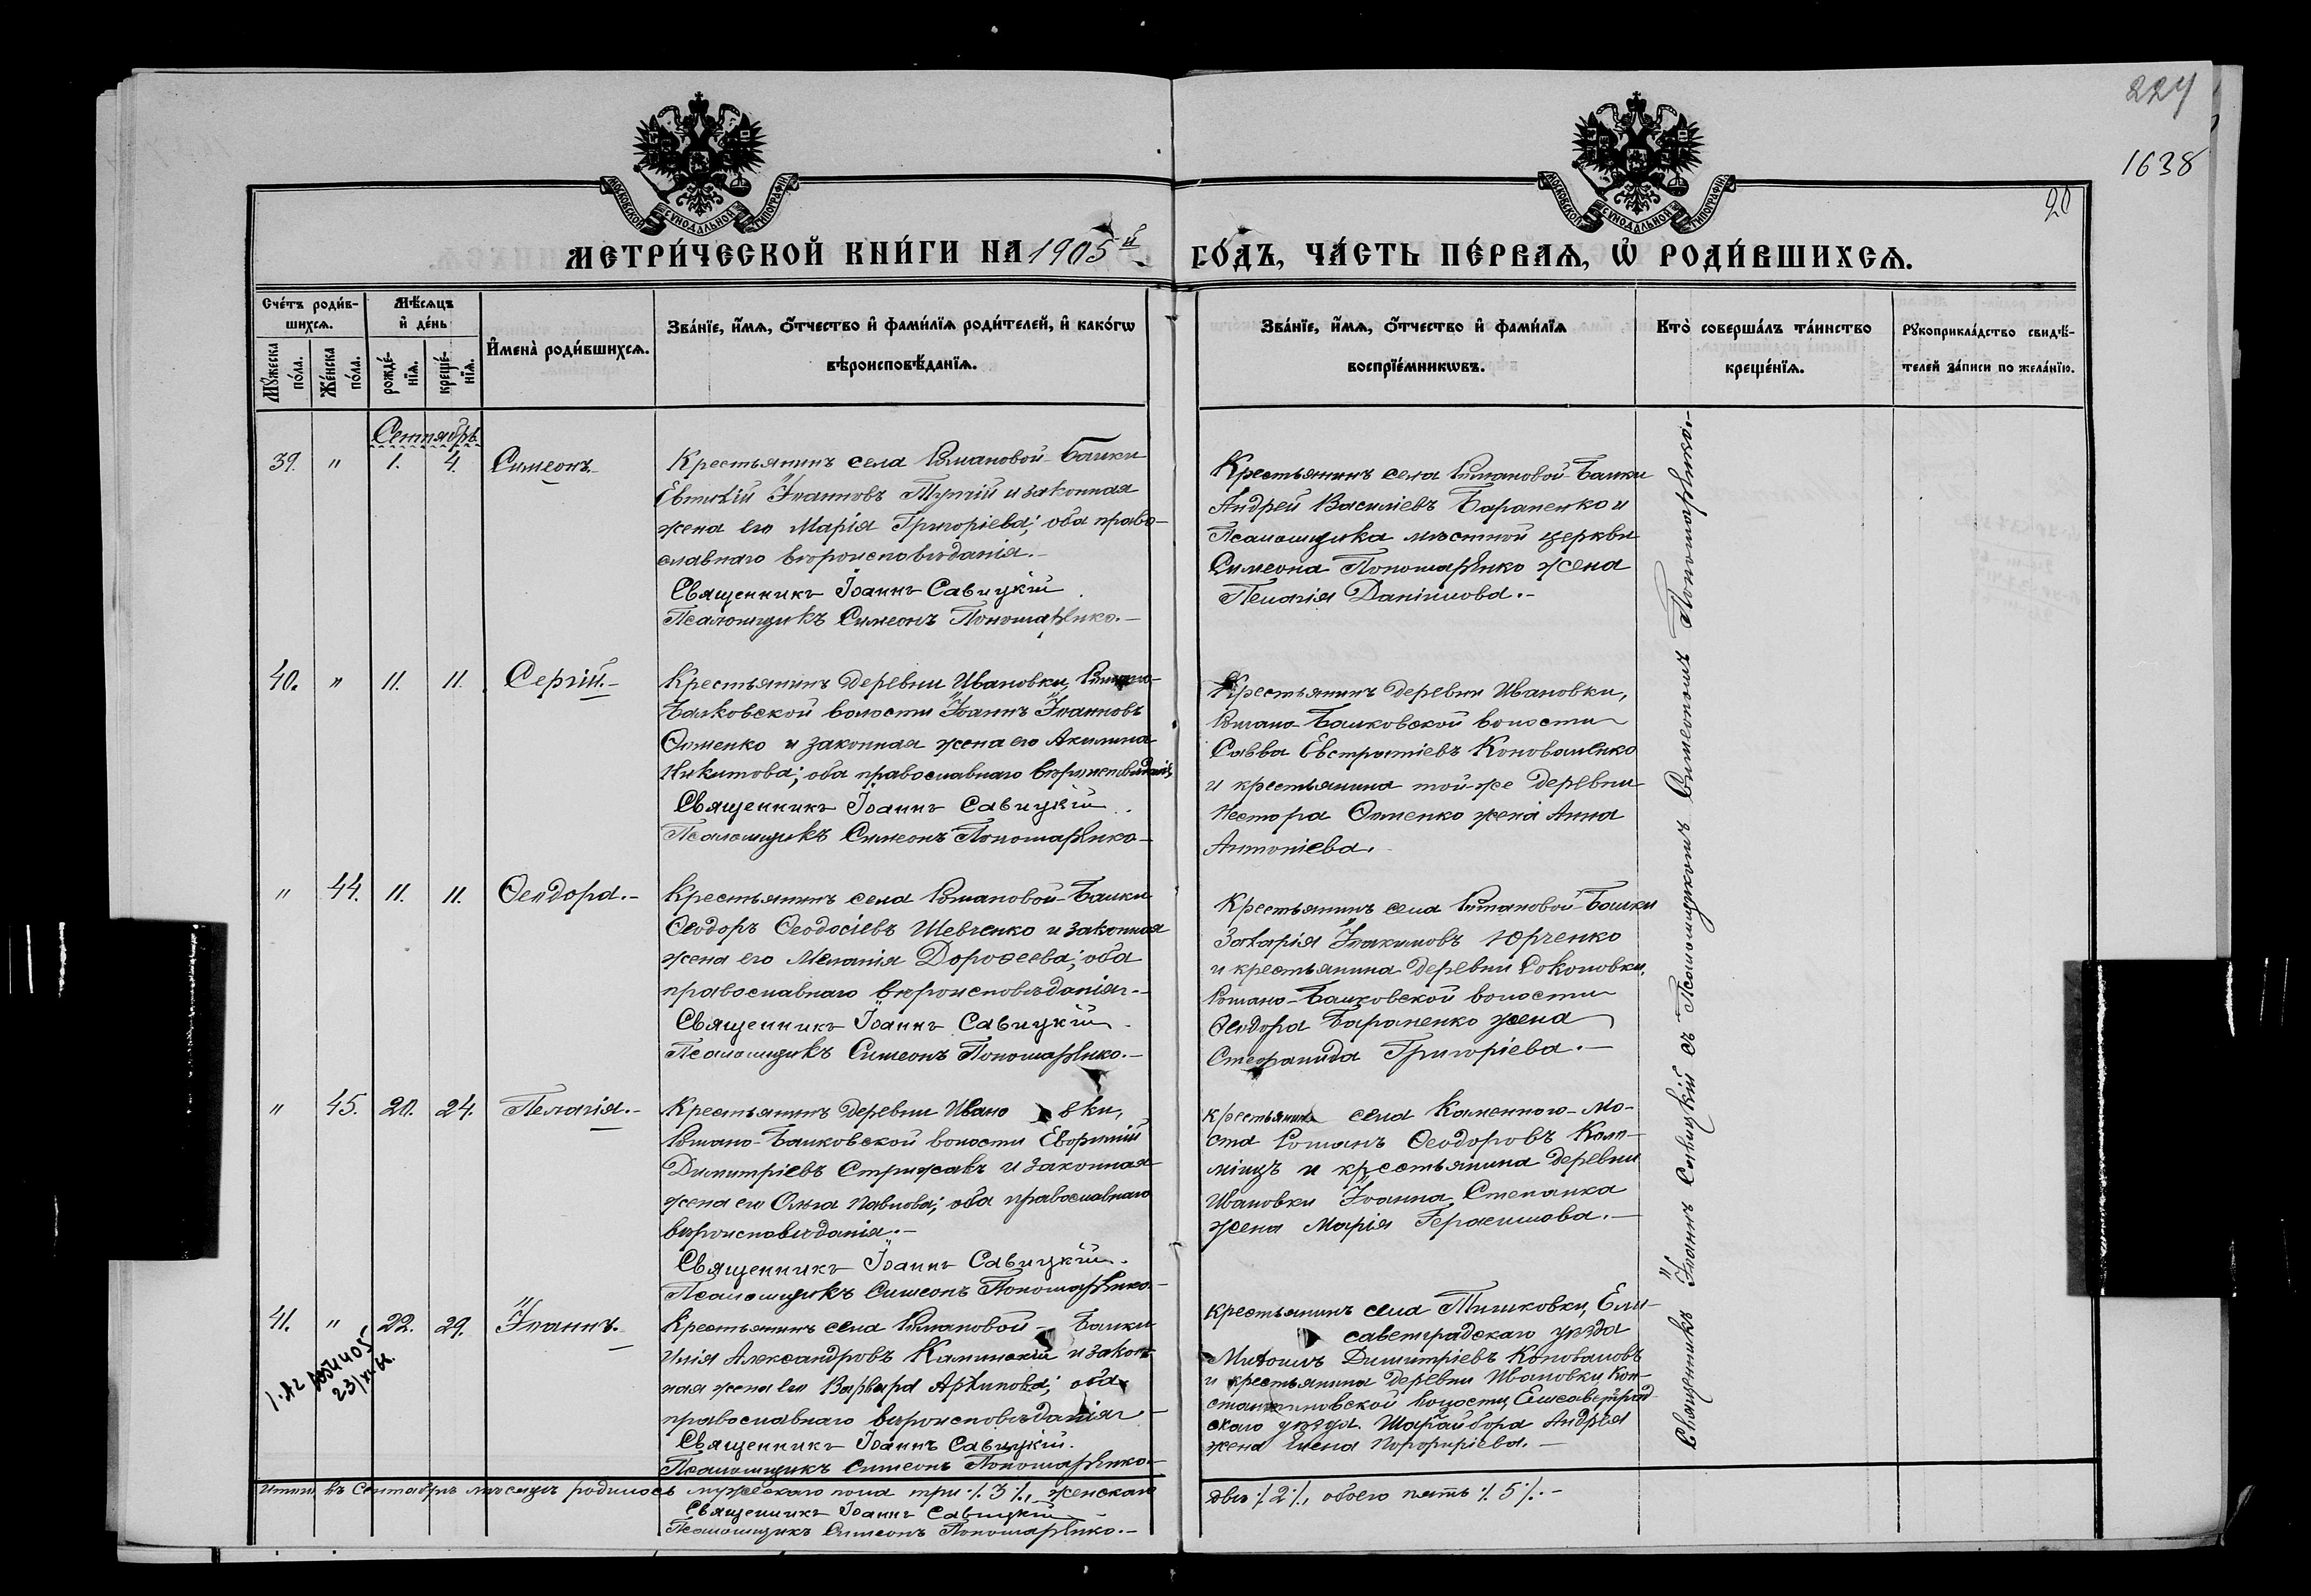 224
1638
20
МОСКОВСКОЙ СѴНОДАЛЬНОЙ ТИПОГРАФІИ
МОСКОВСКОЙ СѴНОДАЛЬНОЙ ТИПОГРАФІИ
МЕТРИ́ЧЕСКОЙ КНИ́ГИ НА 1905й ГО́ДЪ, ЧА́СТЬ ПЕ́РВАѦ, Ѡ҆ РОДИ́ВШИХСѦ.
Сче́тъ роди́в-
шихсѧ.
Мꙋ́жеска по́ла.
Же́нска по́ла.
Мѣ́сѧцъ
и҆ де́нь
рожде́-
нїѧ.
креще́-
нїѧ.
И҆мена̀ роди́вшихсѧ.
Зва́нїе, и҆́мѧ, ѻ҆́тчество и҆ фами́лїѧ роди́телей, и҆ како́гѡ
вѣроисповѣ́данїѧ.
Зва́нїе, и҆́мѧ, ѻ҆́тчество и҆ фами́лїѧ
воспрїе́мникѡвъ.
Кто̀ соверша́лъ та́инство
креще́нїѧ.
Рꙋкоприкла́дство свидѣ́-
телей за́писи по жела́нїю.
Сентябрь
39. " 1. 4. Симеонъ
Крестьянинъ села Романовой-Балки
Евтихій Іоанновъ и законная
жена его Марія Григоріева; оба право-
славнаго вѣроисповѣданія.-
Священникъ Іоаннъ Савицкій
Псаломщикъ Симеонъ Пономаренко.-
Крестьянинъ села Романовой-Балки
Андрей Василіевъ Бараненко и
Псаломщика мѣстной церкви
Симеона Пономаренко жена
Пелагія Даніилова.-
40. " 11. 11. Сергій.-
Крестьянинъ деревни Ивановки, Романо-
Балковской волости Іоаннъ Іоанновъ
и законная жена его Акилина
Никитова; оба православнаго вѣроисповѣданія
Священникъ Іоаннъ Савицкій
Псаломщикъ Симеонъ Пономаренко-
Крестьянинъ деревни Ивановки,
Романо-Балковской волости
Савва Евстратіевъ Коноваленко
и крестьянина той-же деревни
Нестора жена Анна
Антоніева.
" 44. 11. 11. Ѳеодора.-
Крестьянинъ села Романовой-Балки
Ѳеодоръ Ѳеодосіевъ Шевченко и законная
жена его Меланія Дороѳеева; оба
православнаго вѣроисповѣданія.-
Священникъ Іоаннъ Савицкій
Псаломщикъ Симеонъ Пономаренко.-
Крестьянинъ села Романовой-Балки
Захарія Іоакимовъ Юрченко
и крестьянина деревни Соколовки,
Романо-Балковской волости
Ѳеодора Бараненко жена
Стефанида Григоріева.-
" 45. 20. 24. Пелагія.-
Крестьянинъ деревни Ивано вки,
Романо-Балковской волости Евфимій
Димитріевъ Стрижакъ и законная
жена его Ольга Павлова; оба православнаго
вѣроисповѣданія.-
Священникъ Іоаннъ Савицкій.
Псаломщикъ Симеонъ Пономаренко.-
Крестьянинъ села Каменного-Мо-
ста Романъ Ѳеодоровъ
и крестьянина деревни
Ивановки Іоанна Степанка
жена Марія Герасимова.-
41. " 22. 29. Іоаннъ.
Крестьянинъ села Романовой- Балки
Илія Александровъ Калинскій и закон-
ная жена его Варвара Архипова; оба
православнаго вѣроисповѣданія
Священникъ Іоаннъ Савицкій.
Псаломщикъ Симеонъ Пономаренко-
Крестьянинъ села Тишковки, Ели-
саветградскаго уѣзда
Михаилъ Димитріевъ Коноваловъ
и крестьянина деревни Ивановки, Кон-
стантиновской волости, Елисаветград-
скаго уѣзда Андрея
жена Елена Порфиріева.-
Священникъ Іоаннъ Савицкій съ Псаломщикомъ Симеономъ Пономаренко.-
Итого въ Сентябрѣ мѣсяцѣ родилось мужескаго пола три ⁒ 3 ⁒, женскаго
два ⁒ 2 ⁒, обоего пять ⁒ 5 ⁒.-
Священникъ Іоаннъ Савицкій
Псаломщикъ Симеонъ Пономаренко.-